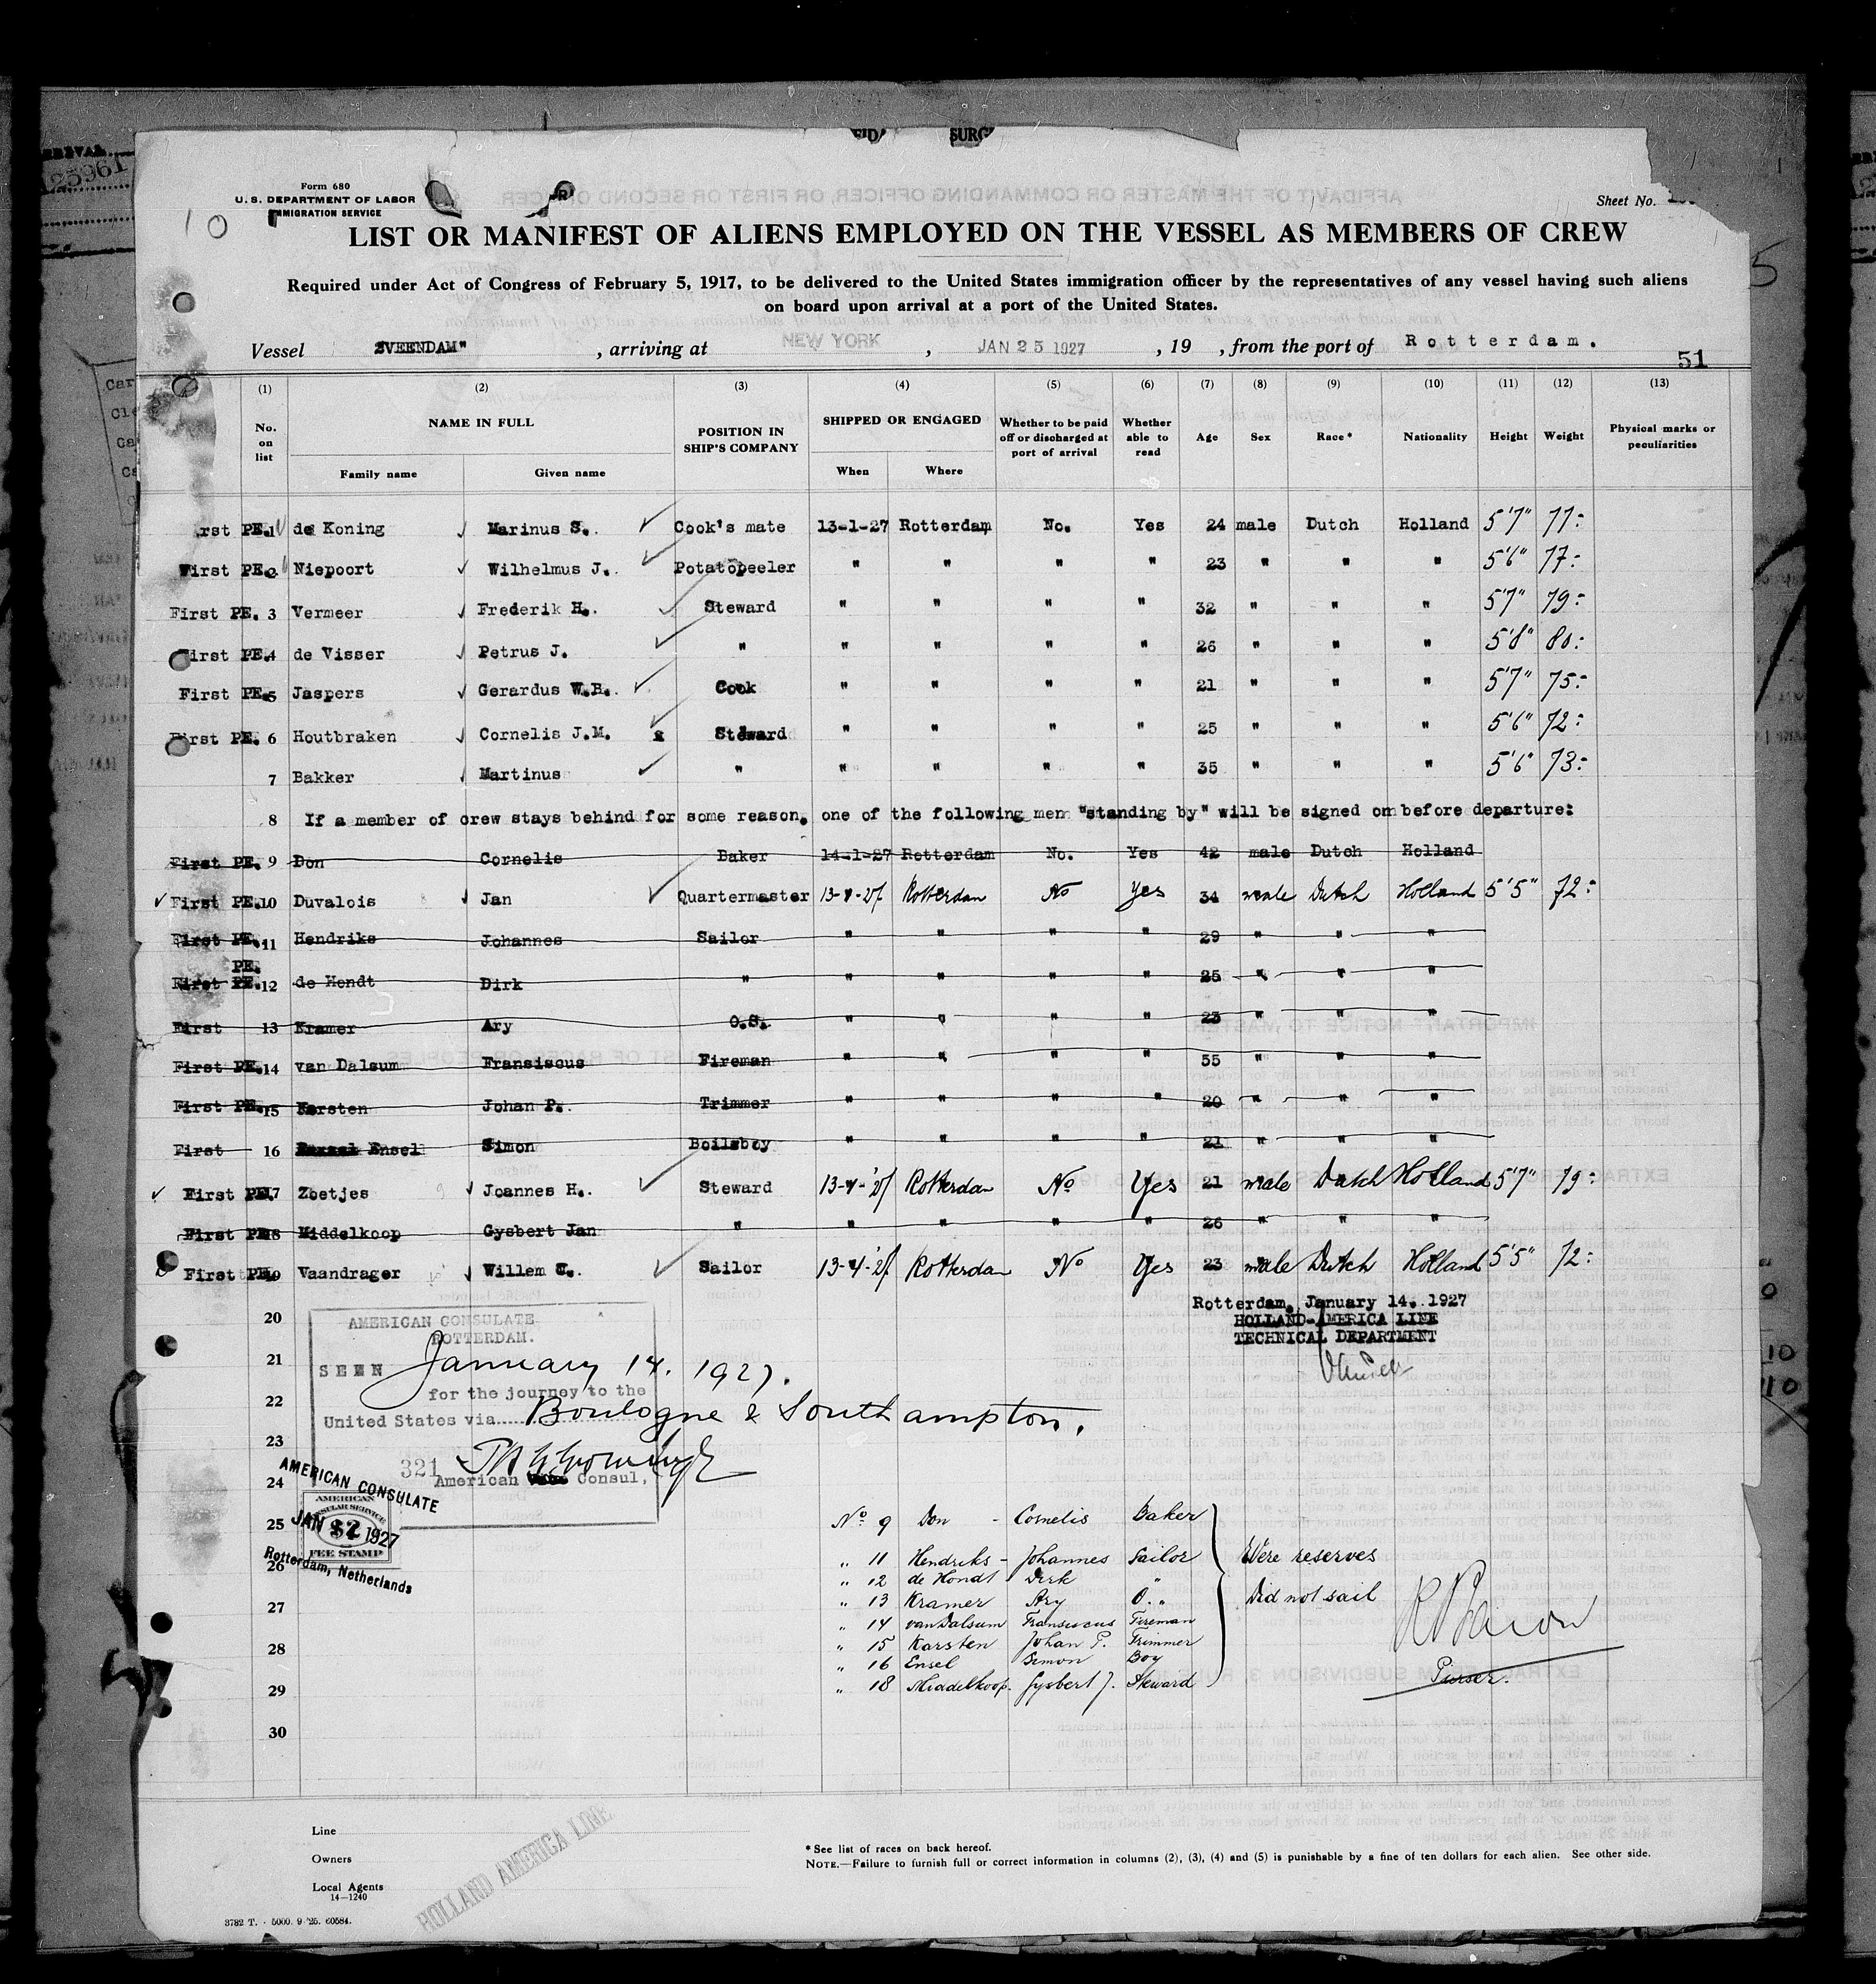 Form 680
U. S. DEPARTMENT OF LABOR
IMMIGRATION SERVICE
10
Sheet No.
LIST OR MANIFEST OF ALIENS EMPLOYED ON THE VESSEL AS MEMBERS OF CREW
Required under Act of Congress of February 5, 1917, to be delivered to the United States immigration officer by the representatives of any vessel having such aliens
on board upon arrival at a port of the United States.
Vessel "VEENDAM" , arriving at NEW YORK , JAN 25 1927 , 19 , from the port of Rotterdam.
51
(1) (2) (3) (4) (5) (6) (7) (8) (9) (10) (11) (12) (13)
No. on list NAME IN FULL Family name Given name POSITION IN SHIP'S COMPANY SHIPPED OR ENGAGED When Where Whether to be paid off or discharged at port of arrival Whether able to read Age Sex Race* Nationality Height Weight Physical marks or peculiarities
rst PE. 1 de Koning Marinus S. Cook's mate 13-1-27 Rotterdam No. Yes 24 male Dutch Holland 5'7" 77:
First PE. 2 Niepoort Wilhelmus J. Potatopeeler " " " " 23 " " " 5'6" 77:
First PE. 3 Vermeer Frederik H. Steward " " " " 32 " " " 5'7" 79:
First PE. 4 de Visser Petrus J. " " " " " 26 " " " 5'8" 80:
First PE. 5 Jaspers Gerardus W.B. Cook " " " " 21 " " " 5'7" 75:
First PE. 6 Houtbraken Cornelis J.M. Steward " " " " 25 " " " 5'6" 72:
7 Bakker Martinus " " " " " 35 " " " 5'6" 73:
8 If a member of crew stays behind for some reason, one of the following men "standing by" will be signed on before departure:
First PE. 9 Don Cornelis Baker 14-1-27 Rotterdam No. Yes 42 male Dutch Holland
First PE. 10 Duvalois Jan Quartermaster 13-4-27 Rotterdam No Yes 34 male Dutch Holland 5'5" 72:
First PE. 11 Hendriks Johannes Sailor " " " " 29 " " "
PE.
First PE. 12 de Hondt Dirk " " " " " 25 " " "
First 13 Kramer Ary O.S. " " " " 23 " " "
First PE. 14 van Dalsum Fransiscus Fireman " " " " 55 " " "
First PE. 15 Karsten Johan P. Trimmer " " " " 20 " " "
First 16 Ensel Simon Boilsboy " " " " 21 " " "
First PE. 17 Zoetjes Joannes H. Steward 13-4-'27 Rotterdam No Yes 21 male Dutch Holland 5'7" 79:
First PE. 18 Middelkoop Gysbert Jan " " " " " 26 " " "
First PE. 19 Vaandrager Willem C. Sailor 13-4-'27 Rotterdam No Yes 23 male Dutch Holland 5'5" 72:
Rotterdam, January 14. 1927
HOLLAND-AMERICA LINE
TECHNICAL DEPARTMENT
20
21
22
23
24
25
26
27
28
29
30
AMERICAN CONSULATE
ROTTERDAM.
SEEN January 14. 1927.
for the journey to the
United States via Boulogne & Southampton.
321
American Consul,
AMERICAN CONSULATE
AMERICAN
CONSULAR SERVICE
JAN 1927
FEE STAMP
Rotterdam, Netherlands
No 9 Don - Cornelis Baker
" 11 Hendriks - Johannes Sailor
" 12 de Hondt Dirk "
" 13 Kramer Ary O. "
" 14 van Dalsum Fransiscus Fireman
" 15 Karsten Johan P. Trimmer
" 16 Ensel Simon Boy
" 18 Middelkoop. Gysbert J. Steward
Were reserves
Did not sail
Purser.
Line
Owners
Local Agents
14—1240
HOLLAND AMERICA LINE
* See list of races on back hereof.
NOTE.—Failure to furnish full or correct information in columns (2), (3), (4) and (5) is punishable by a fine of ten dollars for each alien. See other side.
3782 T. - 5000. 9-'25. 60584.